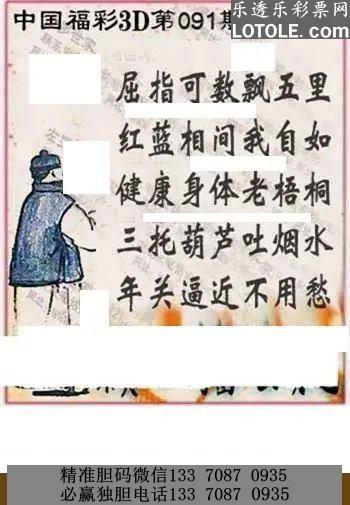 中国福彩3D第091期
乐透乐彩票网
LOTOLE.COM
屈指可数飘五里
红蓝相间我自如
健康身体老梧桐
三托葫芦吐烟水
年关逼近不用愁
精准胆码微信133 7087 0935
必赢独胆电话133 7087 0935